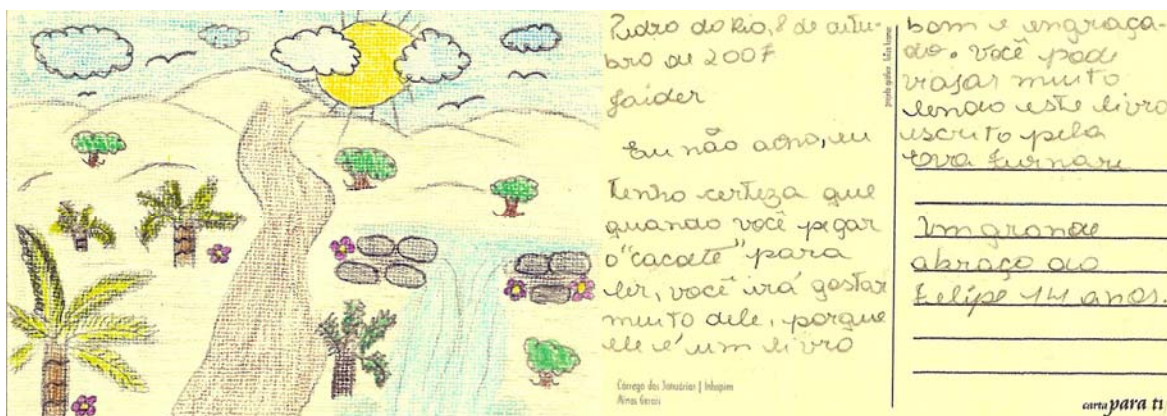 Pedro do Rio, 8 de outu-
bro de 2007
Jaider
Eu não acho, eu
tenho certeza que
quando você pegar
o "cacoete" para
ler, você irá gostar
muito dele, porque
ele é um livro
Córrego dos Januários | Inhapim
Minas Gerais
bom e engraça-
do. Você pode
viajar muito
lendo este livro
escrito pela
Eva Furnari
Um grande
abraço do
Felipe 14 anos.
carta para ti